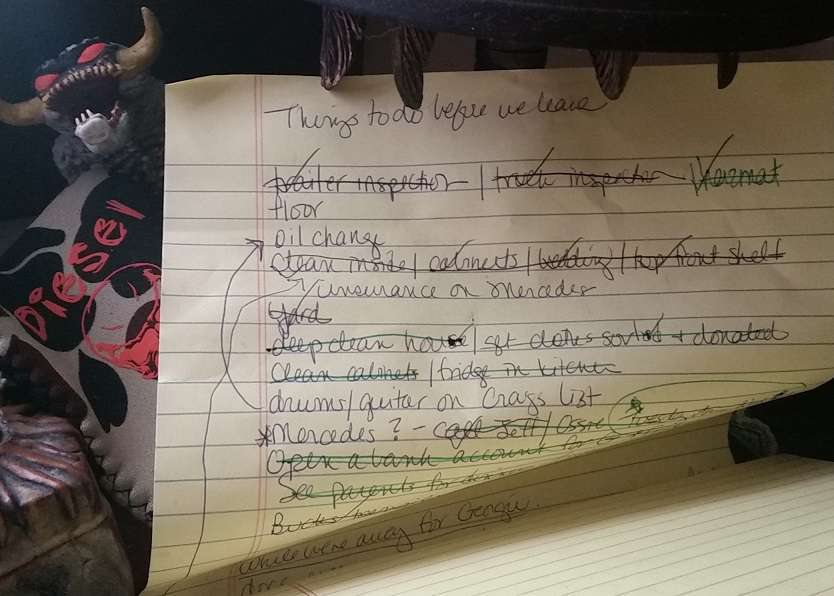 Things to do before we leave
trailer inspection | truck inspection Hazmat
floor
oil change
clean inside | cabinets | bedding | top front shelf
insurance on Mercedes
Yard
deep clean house | get clothes sorted + donated
Clean cabinets | fridge in kitchen
drums/guitar on Craigs list
*Mercedes? - call Jeff/
Open a bank account for
See parents for
while were away for George.
DiESEl